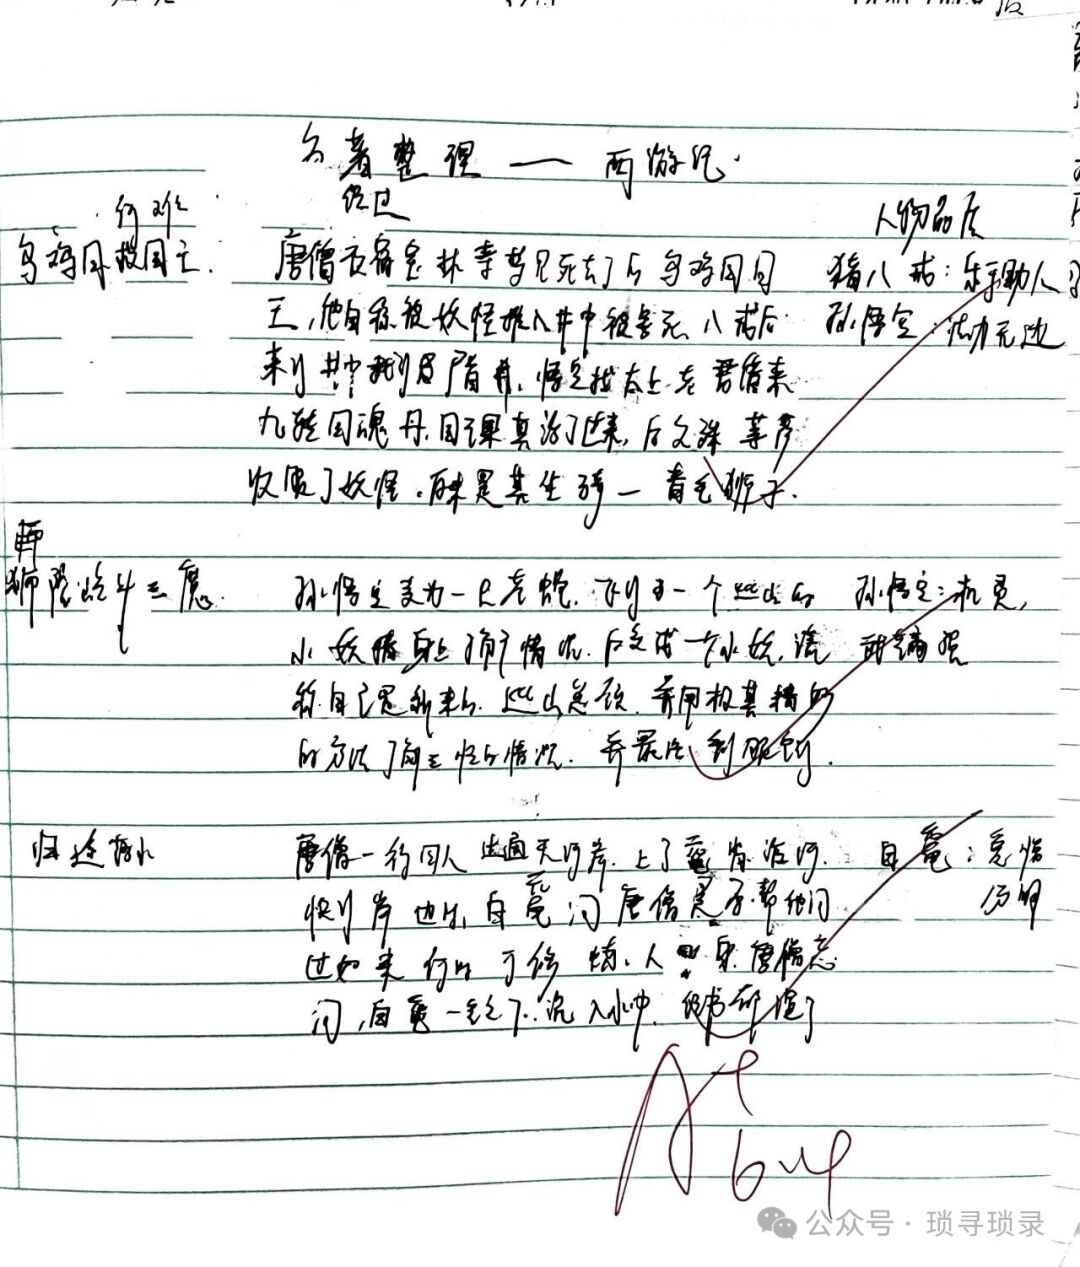 名著整理 —— 西游记.
何难
经过
人物品质
乌鸡国救国王.
唐僧夜宿宝林寺梦见死去了的乌鸡国国
猪八戒：乐于助人
王,他自称被妖怪推入井中被害死,八戒后
孙悟空：法力无边
来到井中找到尸首并,悟空找太上老君借来
九转回魂丹,国王果真活了过来,后文殊菩萨
收服了妖怪,原来是其坐骑一青毛狮子.
狮驼岭斗三魔.
孙悟空变为一只苍蝇,飞到了一个巡山的
孙悟空：机灵,
小妖身上了解了情况,后变成一个小妖,谎
称自己是新来的巡山总领,并用极其精
的方法了解三怪的情况.并最后
归途落水
唐僧一行四人 出通天河岸.上了鼋背沿河.
白鼋：
快到岸边时,白鼋问唐僧是否帮他问
过如来何时可修成人 唐僧忘
问,白鼋一气之下.沉入水中,经书都湿了
A+
6.4
公众号·琐寻琐录